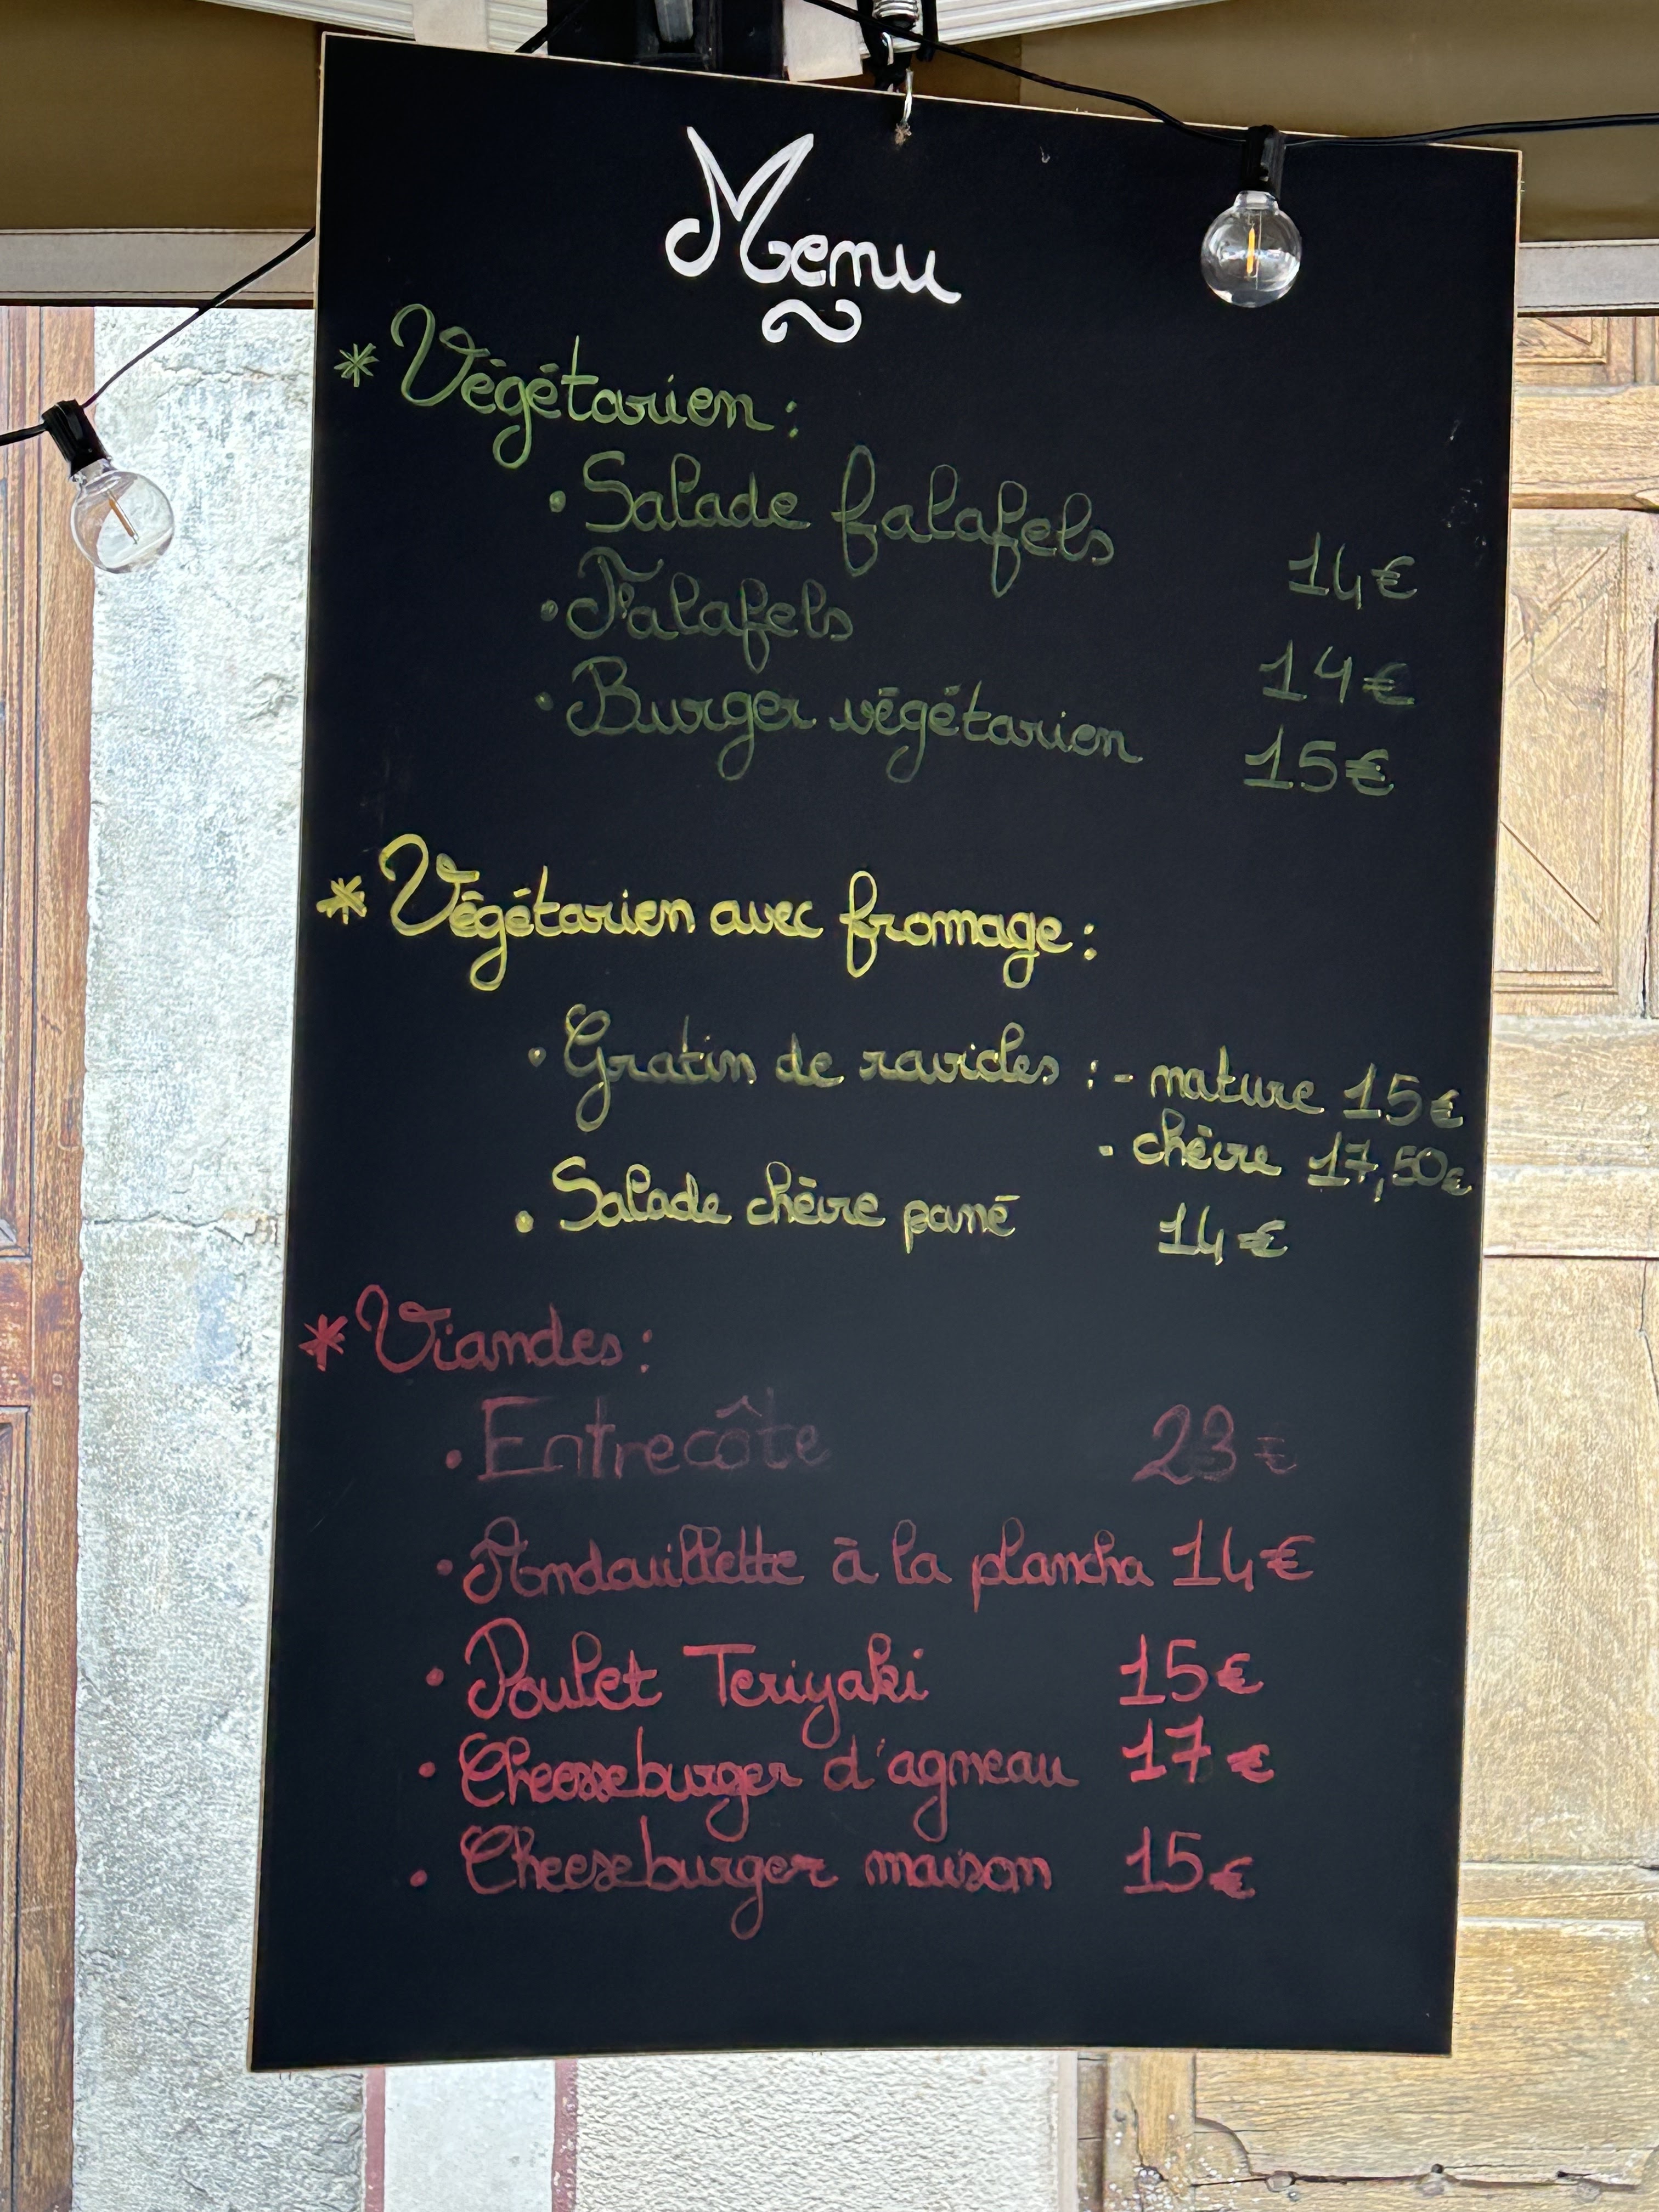 Menu
* Végétarien :
• Salade falafels 14€
• Falafels 14€
• Burger végétarien 15€
* Végétarien avec fromage :
• Gratin de ravioles : - nature 15€
- chèvre 17,50€
• Salade chèvre pané 14€
* Viandes :
• Entrecôte 23€
• Andouillette à la plancha 14€
• Poulet Teriyaki 15€
• Cheeseburger d'agneau 17€
• Cheeseburger maison 15€